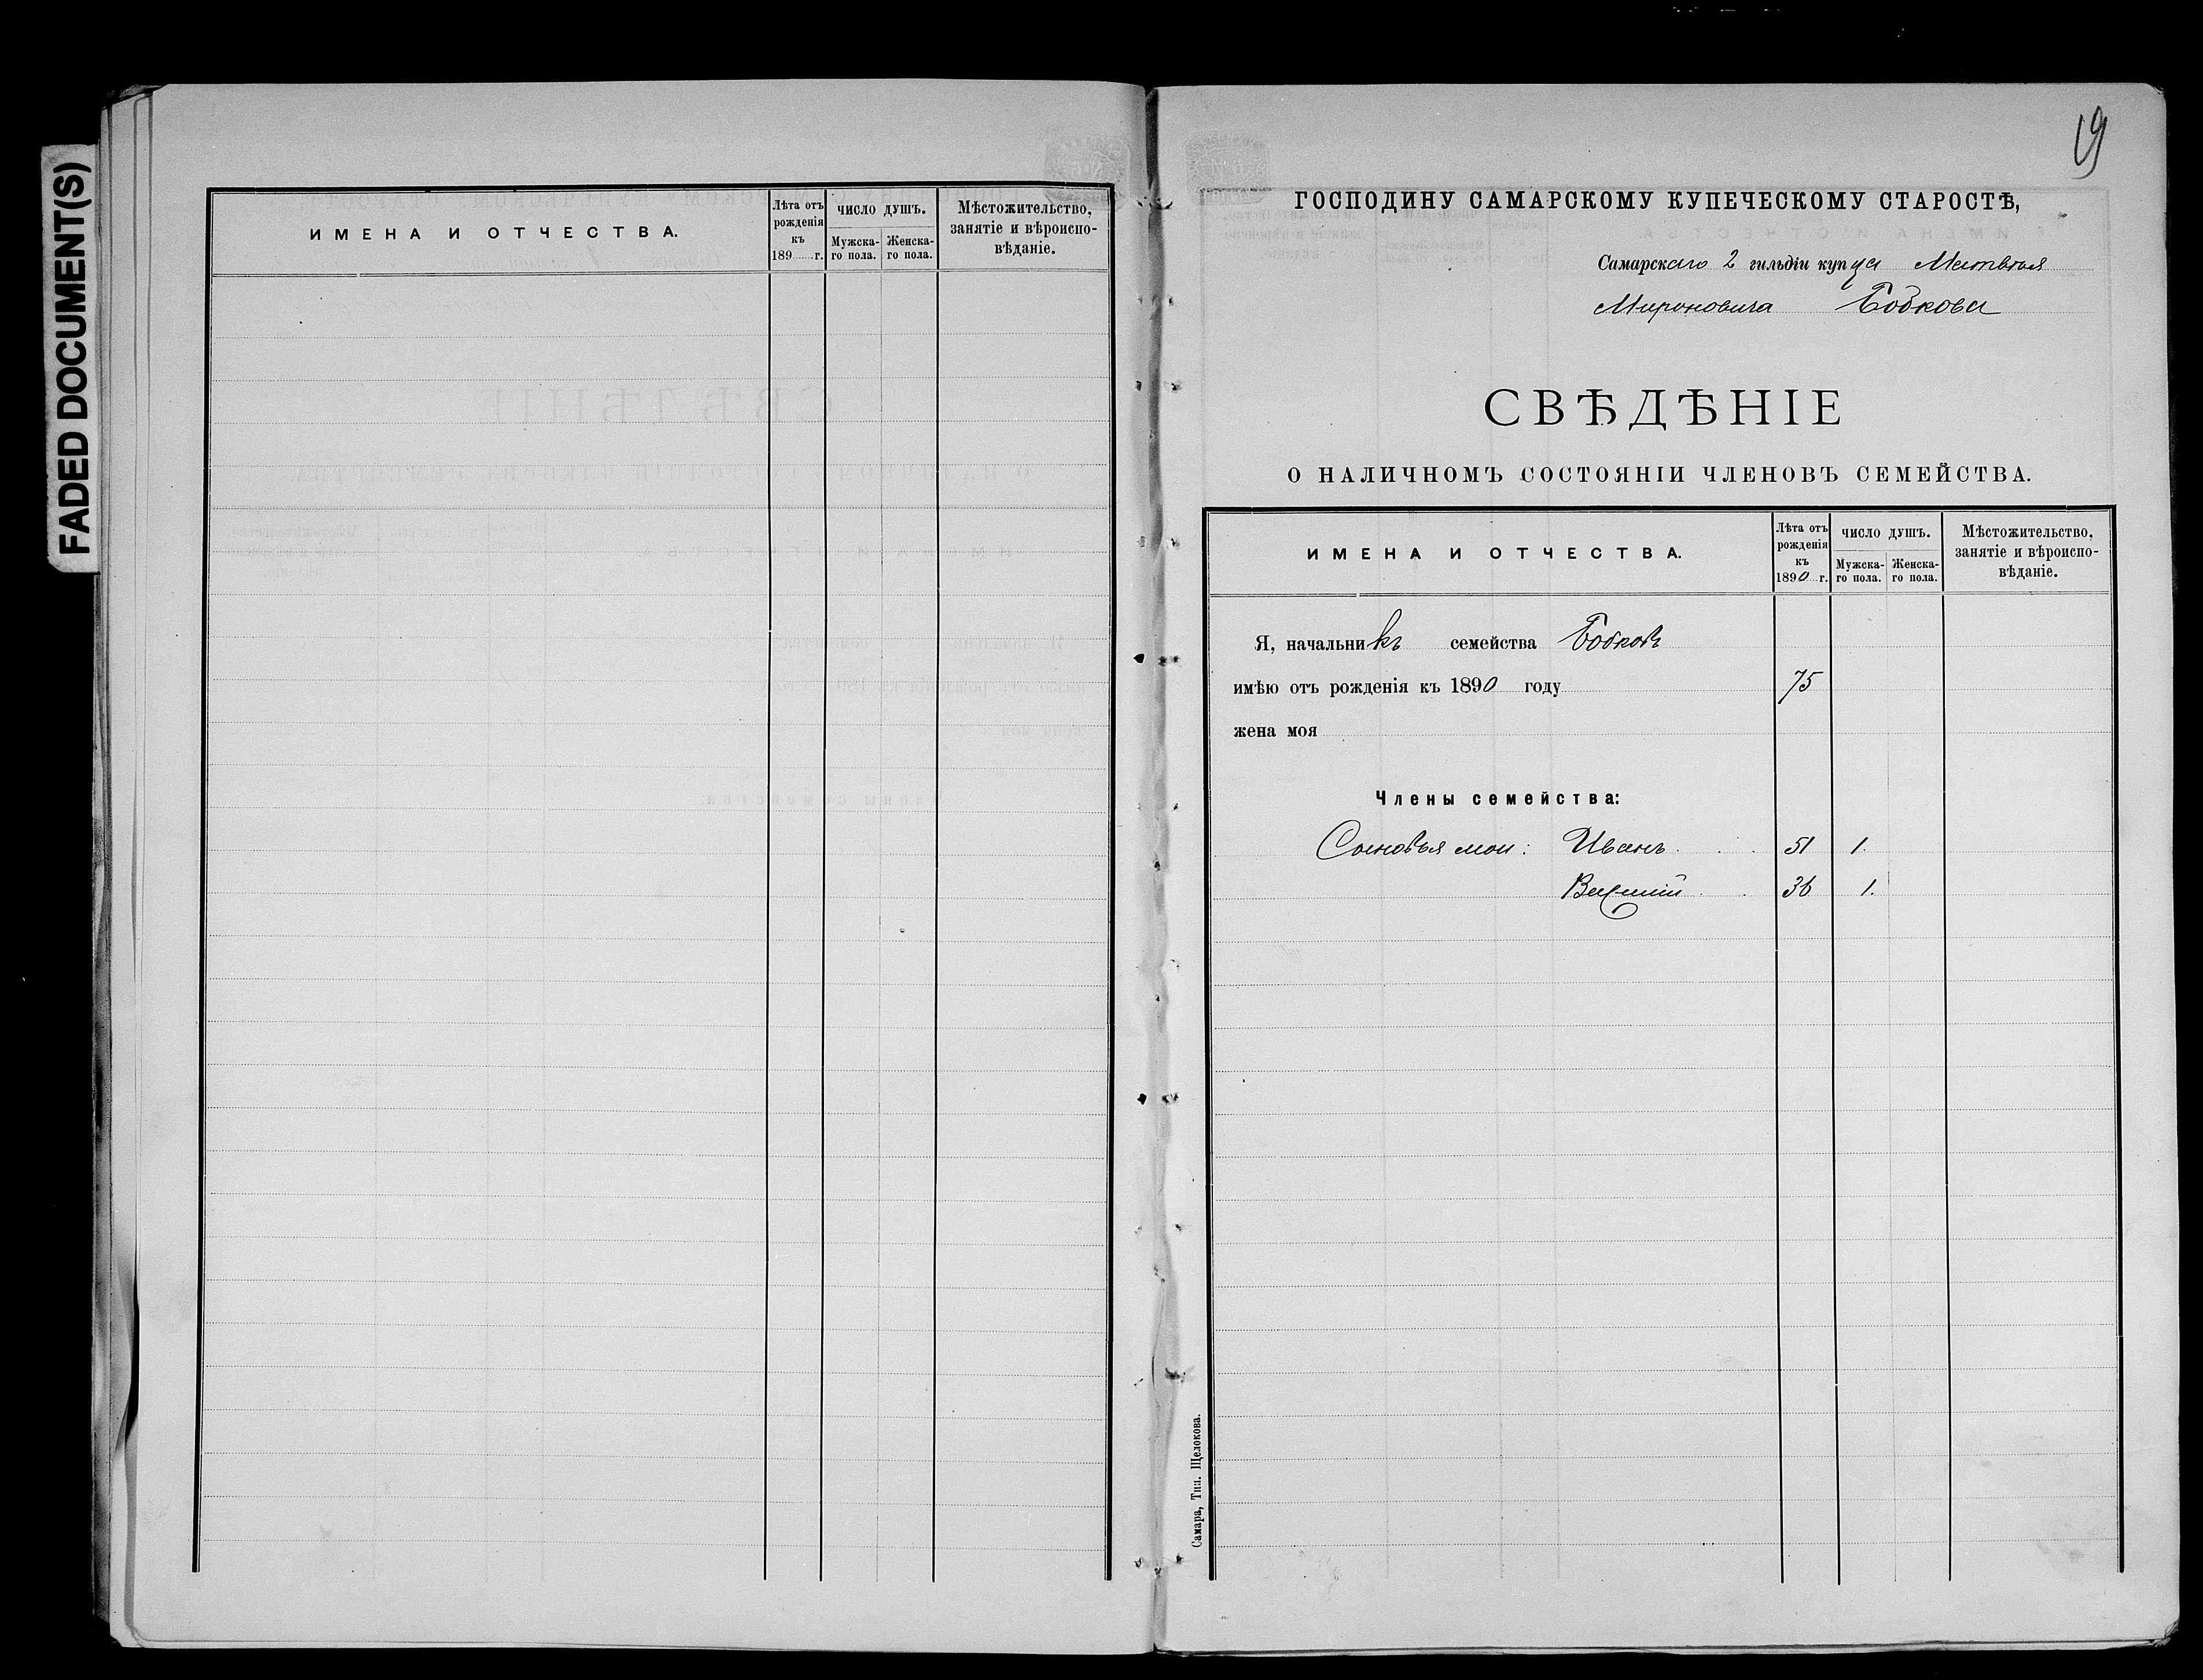 FADED DOCUMENT(S)
ИМЕНА И ОТЧЕСТВА.
Лѣта отъ рожденія къ 189 г.
число душъ.
Мужска-го пола.
Женска-го пола.
Мѣстожительство, занятіе и вѣроиспо-вѣданіе.
19
ГОСПОДИНУ САМАРСКОМУ КУПЕЧЕСКОМУ СТАРОСТѢ,
Самарскаго 2 гильдіи купца Матвѣя
Мироновича Бобкова
СВѢДѢНІЕ
О НАЛИЧНОМЪ СОСТОЯНІИ ЧЛЕНОВЪ СЕМЕЙСТВА.
ИМЕНА И ОТЧЕСТВА.
Лѣта отъ рожденія къ 1890 г.
число душъ.
Мужска-го пола.
Женска-го пола.
Мѣстожительство, занятіе и вѣроиспо-вѣданіе.
Я, начальникъ семейства Бобковъ
имѣю отъ рожденія къ 1890 году 75
жена моя
Члены семейства:
Сыновья мои: Иванъ 51 1.
Василій 36 1.
Самара, Тип. Щелокова.